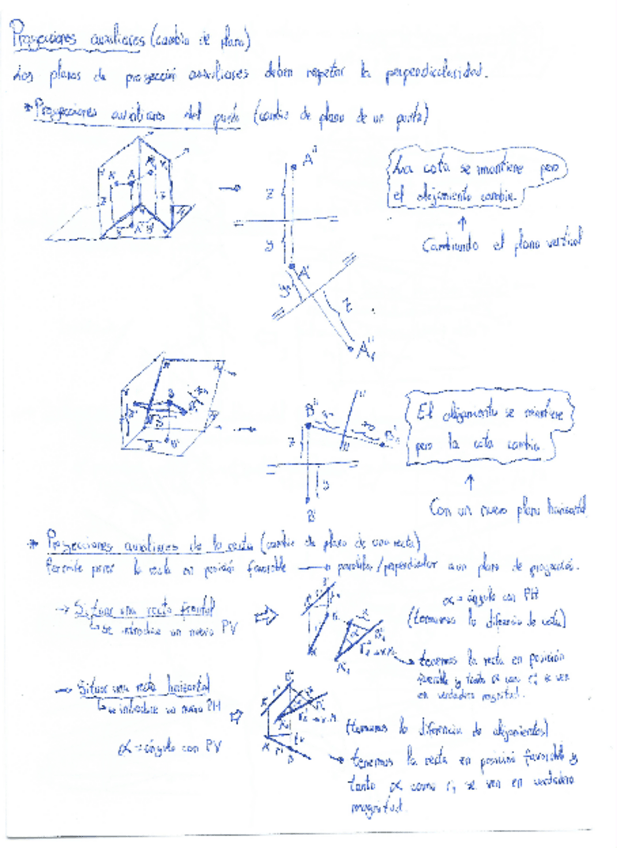 Proyecciones auxiliares (cambio de plano)
Los planos de proyección auxiliares deben respetar la perpendicularidad.
* Proyecciones auxiliares del punto (cambio de plano de un punto)
A''
z
y
A'
y
z
A''₁
La cota se mantiene pero
el alejamiento cambia.
↑
Cambiando el plano vertical
B''
z
y
B'
El alejamiento se mantiene
pero la cota cambia
↑
Con un nuevo plano horizontal
* Proyecciones auxiliares de la recta (cambio de plano de una recta)
Permite poner la recta en posición favorable → paralela/perpendicular a un plano de proyección.
→ Situar una recta frontal
↳ se introduce un nuevo PV
α = ángulo con PH
(tomamos la diferencia de cota)
→ tenemos la recta en posición
favorable y tanto α como r₁ se ven
en verdadera magnitud.
→ Situar una recta horizontal
↳ se introduce un nuevo PH
α = ángulo con PV
(tomamos la diferencia de alejamientos)
→ tenemos la recta en posición favorable y
tanto α como r₁ se ven en verdadera
magnitud